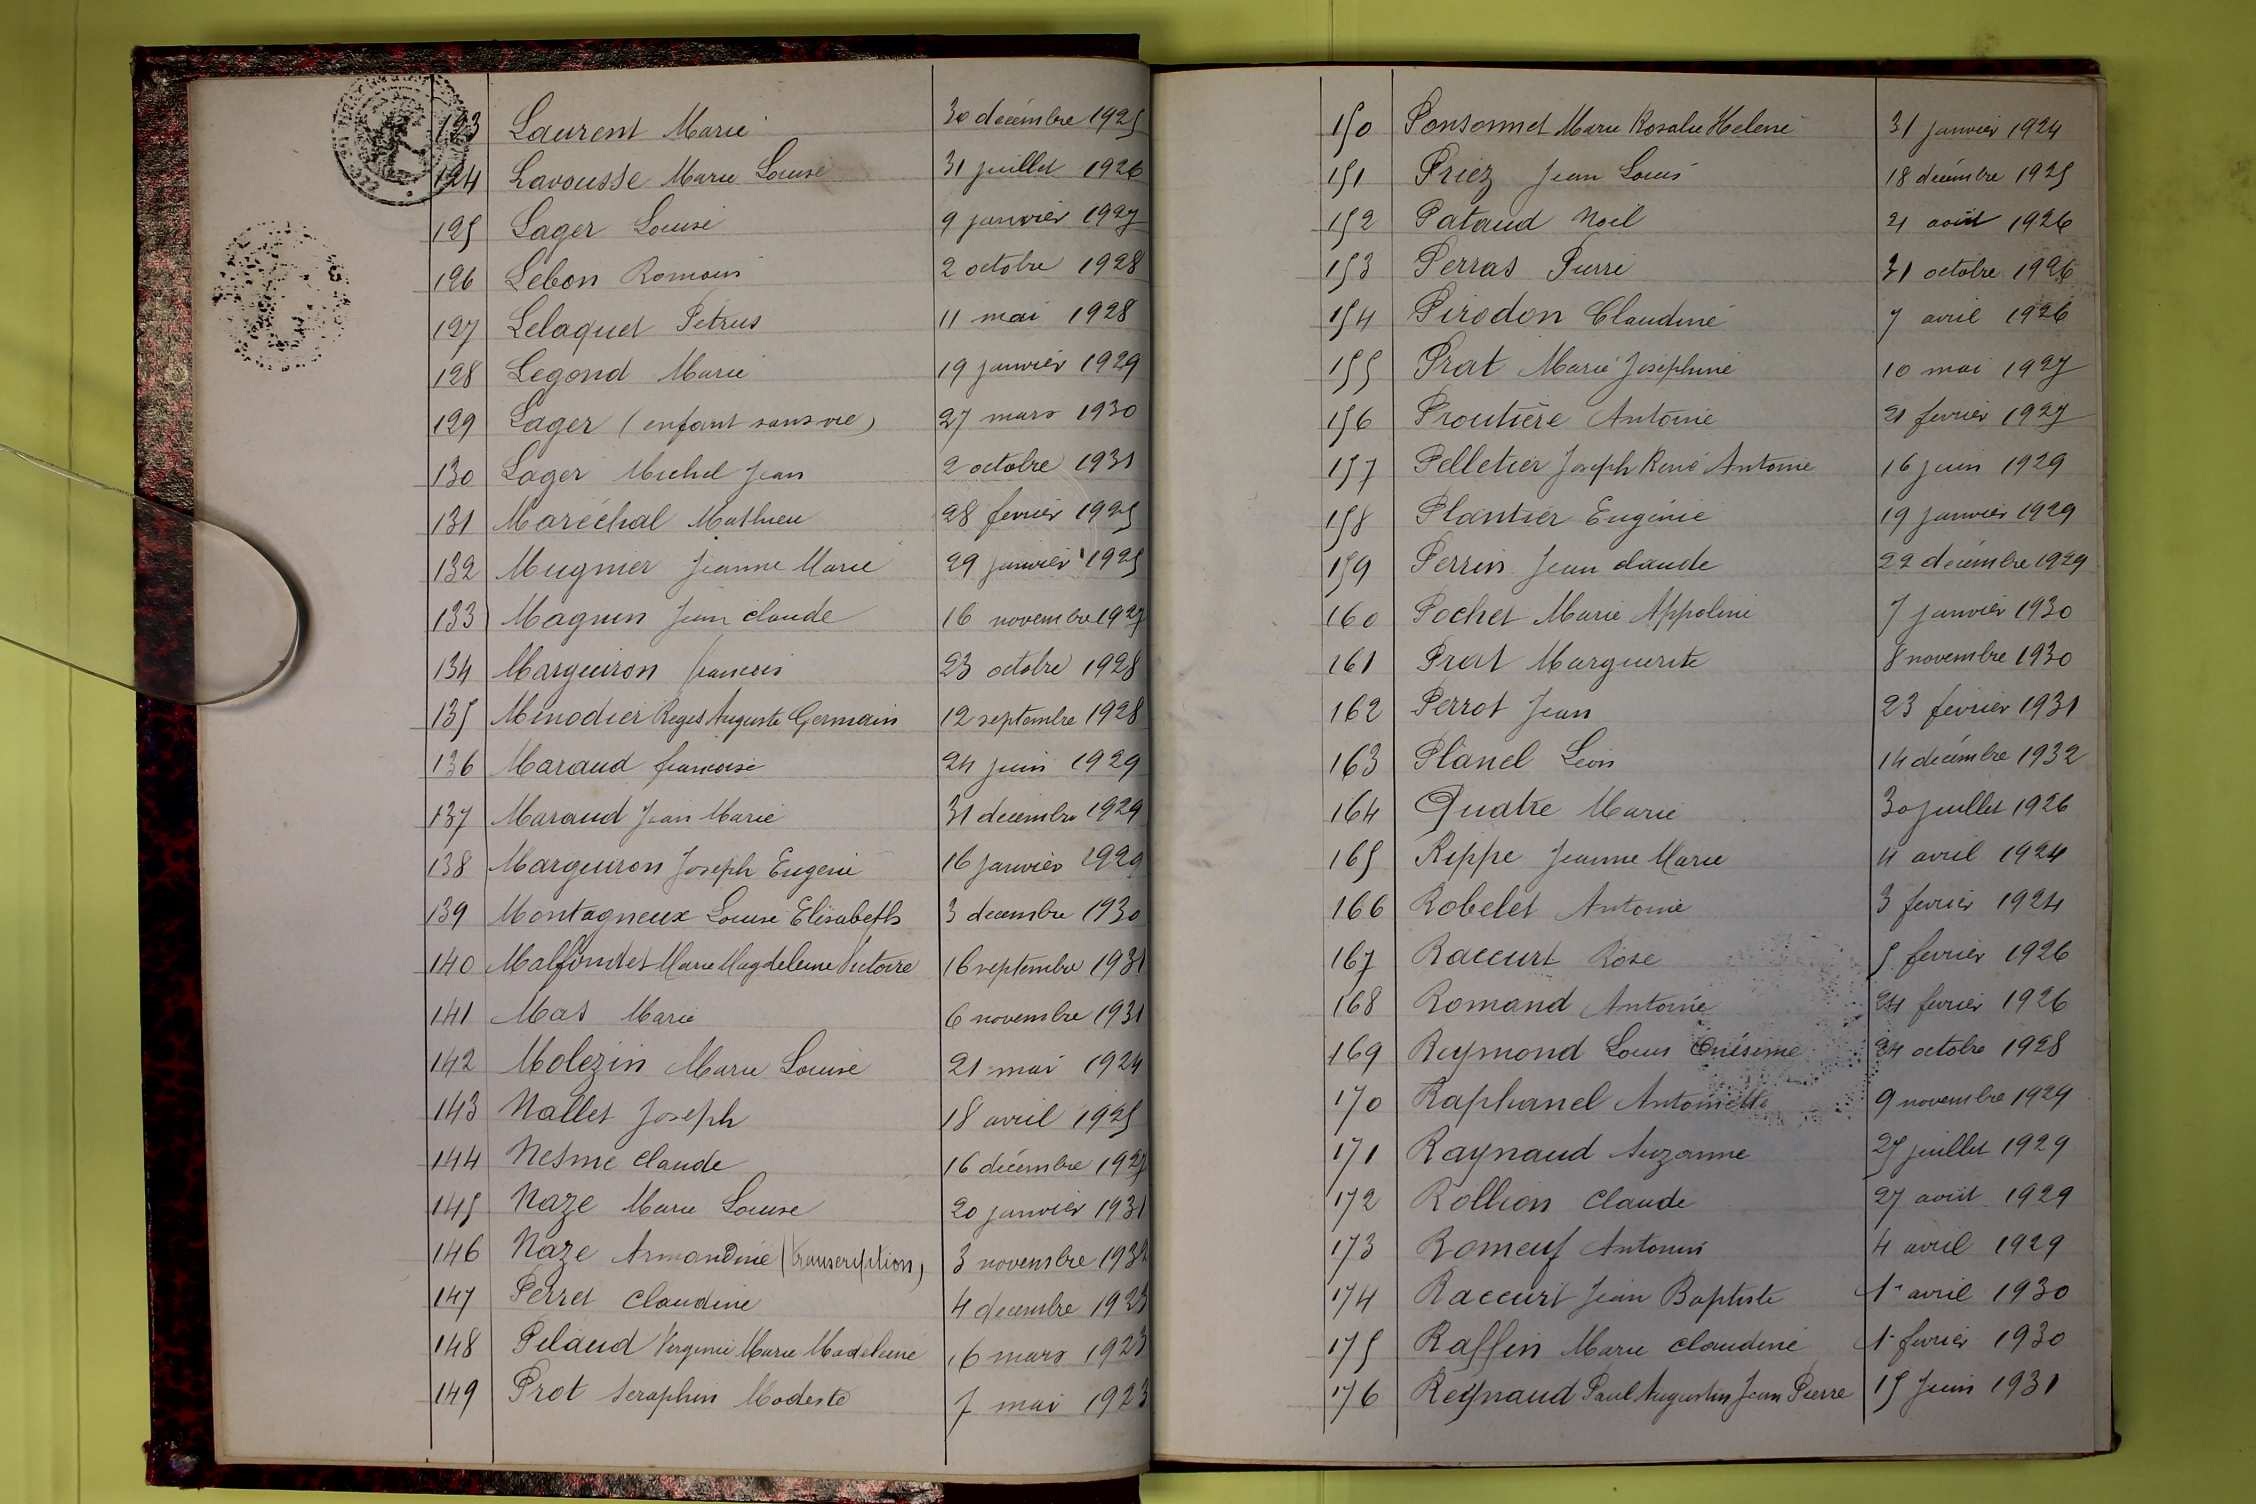 123 Laurent Marie 30 décembre 1925
124 Lavousse Marie Louise 31 juillet 1926
125 Lager Louise 9 janvier 1927
126 Lebon Romain 2 octobre 1928
127 Lelaquet Petrus 11 mai 1928
128 Legond Marie 19 janvier 1929
129 Lager (enfant sans vie) 27 mars 1930
130 Lager Michel Jean 2 octobre 1931
131 Maréchal Mathieu 28 fevrier 1925
132 Mugnier Jeanne Marie 29 janvier 1925
133 Magnin Jean claude 16 novembre 1927
134 Marguiron francois 23 octobre 1928
135 Minodier Regis Auguste Germain 12 septembre 1928
136 Maraud francoise 24 juin 1929
137 Maraud Jean Marie 31 decembre 1929
138 Marguiron Joseph Eugene 16 janvier 1929
139 Montagneux Louise Elisabeth 3 decembre 1930
140 Malfondet Marie Magdeleine Victoire 16 septembre 1931
141 Mas Marie 6 novembre 1931
142 Molezin Marie Louise 21 mai 1924
143 Nallet Joseph 18 avril 1925
144 Nesme claude 16 décembre 1927
145 Naze Marie Louise 20 janvier 1931
146 Naze Armandine (transcription) 3 novembre 1932
147 Perret Claudine 4 decembre 1923
148 Pelaud Virginie Marie Madeleine 16 mars 1923
149 Prot Seraphin Modeste 7 mai 1923
150 Ponsonnet Marie Rosalie Helene 31 janvier 1924
151 Priez Jean Louis 18 décembre 1925
152 Pataud Noël 21 août 1926
153 Perras Pierre 31 octobre 1926
154 Pirodon Claudine 7 avril 1926
155 Prat Marie Joséphine 10 mai 1927
156 Proutière Antoine 21 fevrier 1927
157 Pelletier Joseph René Antoine 16 juin 1929
158 Plantier Eugénie 19 janvier 1929
159 Perrin Jean claude 22 décembre 1929
160 Pochet Marie Appoline 7 janvier 1930
161 Prat Marguerite 8 novembre 1930
162 Perrot Jean 23 février 1931
163 Planel Léon 14 décembre 1932
164 Quatre Marie 30 juillet 1926
165 Rippe Jeanne Marie 11 avril 1924
166 Robelet Antoine 3 fevrier 1924
167 Raccurt Rose 5 fevrier 1926
168 Romand Antoine 24 fevrier 1926
169 Reymond Louis Onésime 24 octobre 1928
170 Raphanel Antoinette 9 novembre 1929
171 Raynaud Suzanne 25 juillet 1929
172 Rollion Claude 27 août 1929
173 Romeuf Antonin 4 avril 1929
174 Raccurt Jean Baptiste 1er avril 1930
175 Raffin Marie claudine 1er fevrier 1930
176 Reynaud Paul Augustin Jean Pierre 15 Juin 1931